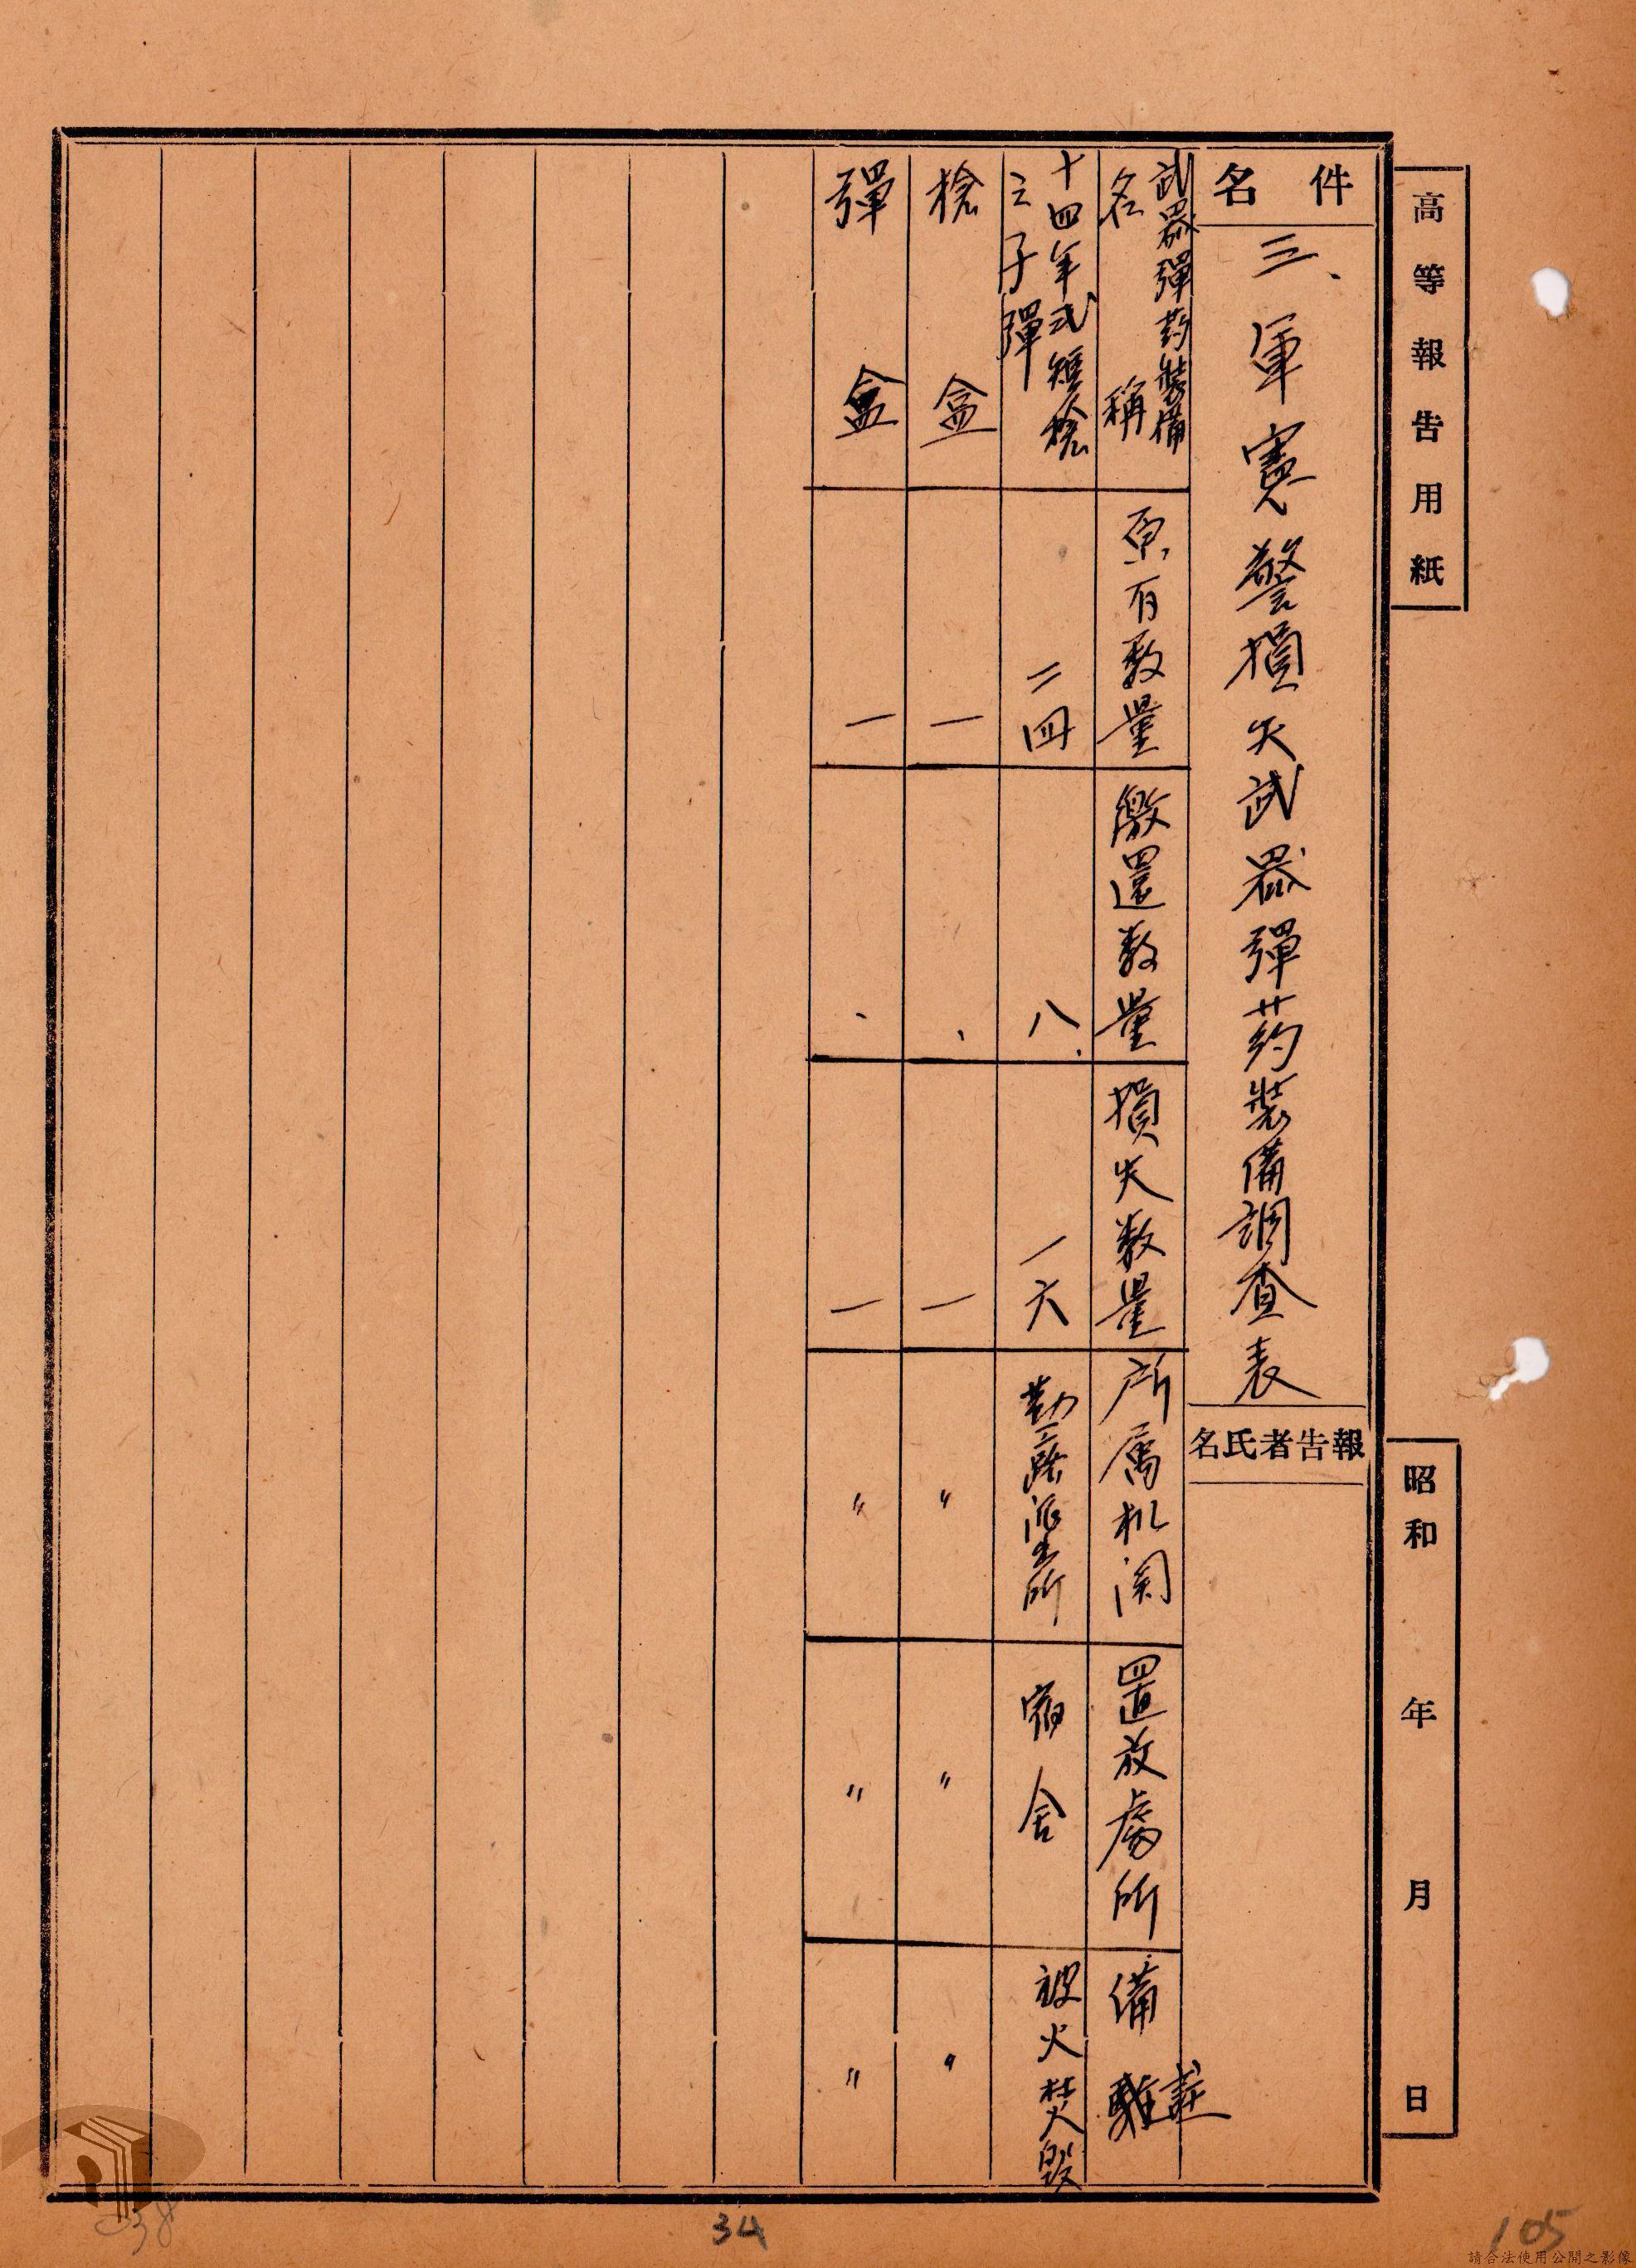 高等報告用紙
昭和 年 月 日
件名
三、軍憲警損失武器彈药裝備調查表
報告者氏名
武器彈药裝備
名稱
原有数量
繳還数量
損失数量
所属机関
置放處所
備
註
十四年式短槍
之子彈
二四
八.
一六
派出所
宿舍
被火焚毀
槍盒
一
、
一
〃
〃
〃
彈盒
一
、
一
〃
〃
〃
38
34
105
請合法使用公開之影像